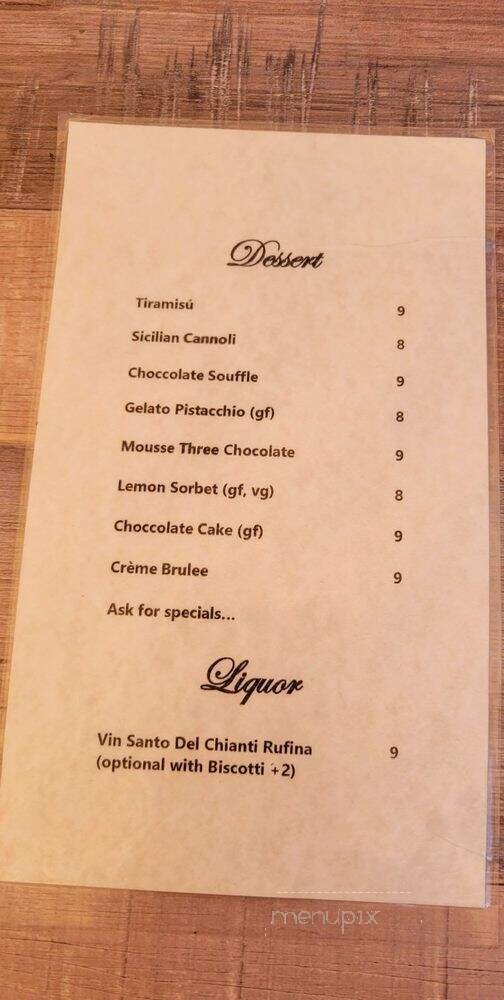 Dessert
Tiramisú 9
Sicilian Cannoli 8
Choccolate Souffle 9
Gelato Pistacchio (gf) 8
Mousse Three Chocolate 9
Lemon Sorbet (gf, vg) 8
Choccolate Cake (gf) 9
Crème Brulee 9
Ask for specials...
Liquor
Vin Santo Del Chianti Rufina 9
(optional with Biscotti +2)
menupix